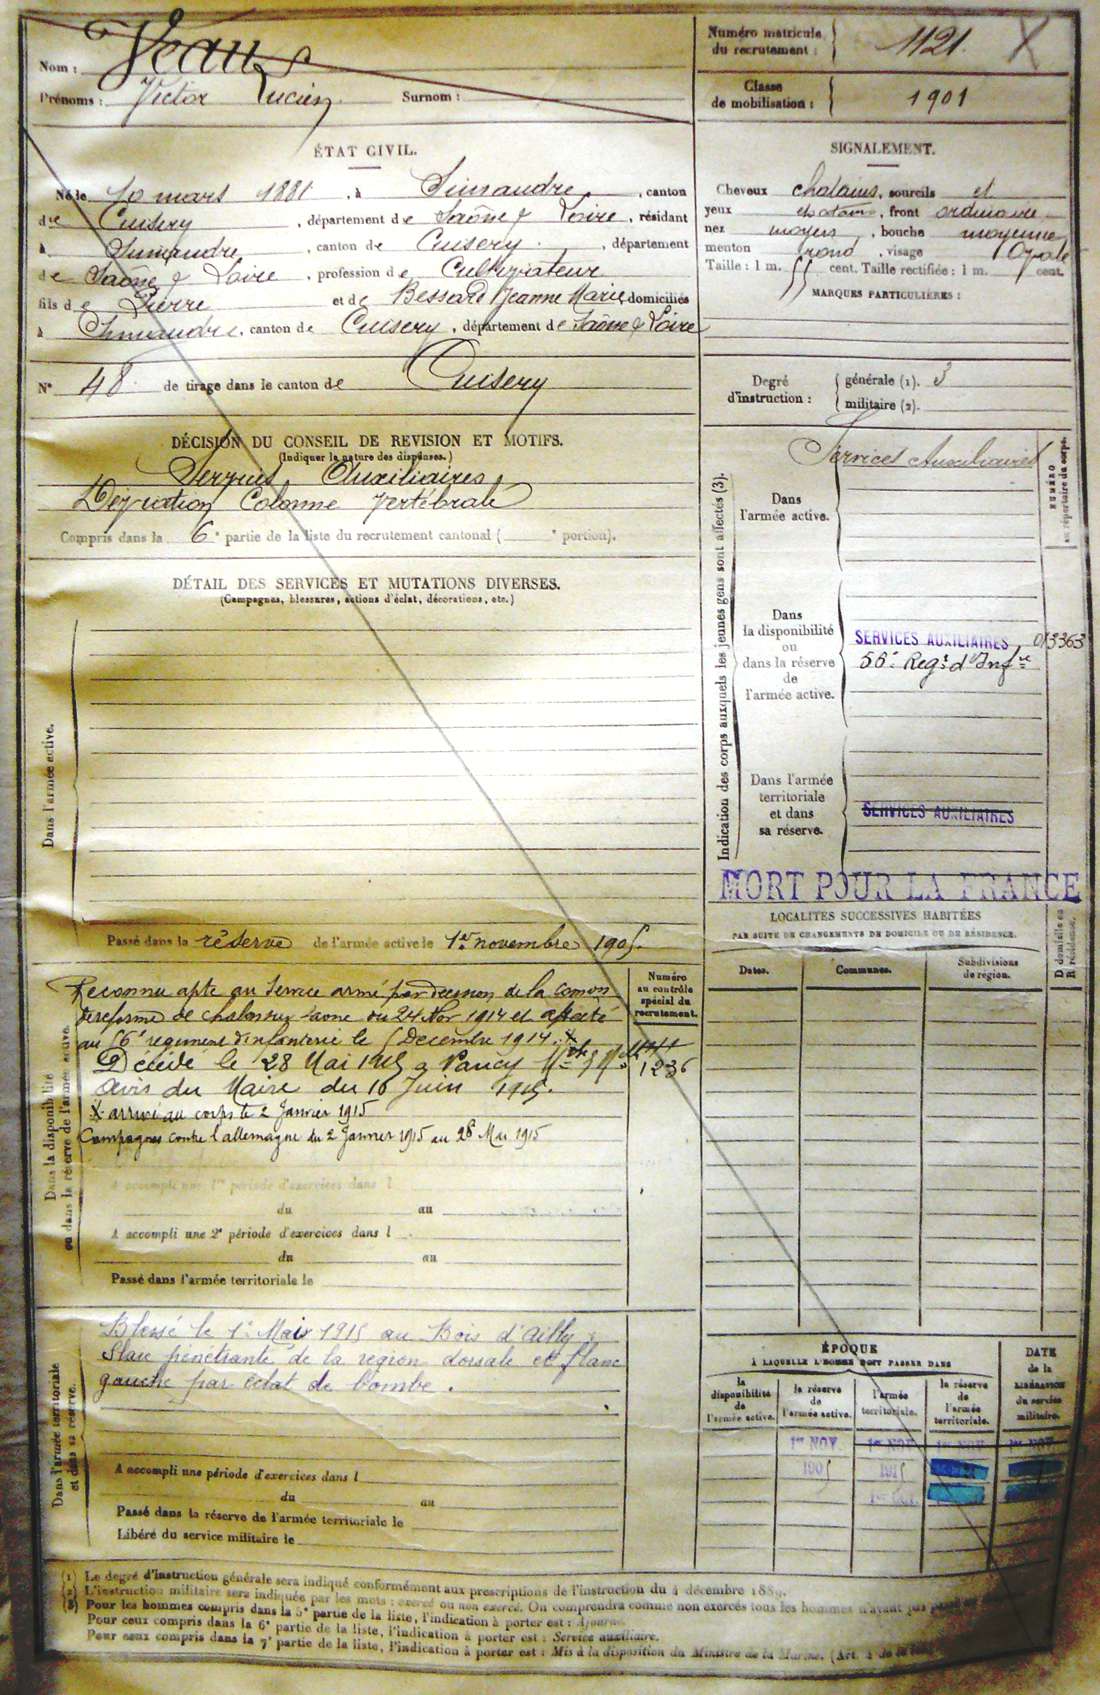 Nom : Veau
Prénoms : Victor Lucien Surnom :
Numéro matricule du recrutement : 1121 X
Classe de mobilisation : 1901
ÉTAT CIVIL.
Né le 10 mars 1881, à Simandre, canton
de Cuisery, département de Saône & Loire, résidant
à Simandre, canton de Cuisery, département
de Saône & Loire, profession de Cultivateur
fils de Pierre et de Bessard Jeanne Marie domiciliés
à Simandre, canton de Cuisery, département de Saône & Loire
N° 48 de tirage dans le canton de Cuisery
SIGNALEMENT.
Cheveux chatains, sourcils et
yeux chatains, front ordinaire
nez moyen, bouche moyenne
menton rond, visage Ovale
Taille : 1 m. 55 cent. Taille rectifiée : 1 m. cent.
MARQUES PARTICULIÈRES :
Degré d'instruction : générale (1). 3
militaire (2).
DÉCISION DU CONSEIL DE REVISION ET MOTIFS.
(Indiquer la nature des dispenses.)
Services Auxiliaires
Déviation Colonne Vertébrale
Compris dans la 6e partie de la liste du recrutement cantonal ( e portion).
DÉTAIL DES SERVICES ET MUTATIONS DIVERSES.
(Campagnes, blessures, actions d'éclat, décorations, etc.)
Dans l'armée active.
Passé dans la réserve de l'armée active le 1er novembre 1905.
Indication des corps auxquels les jeunes gens sont affectés (3).
NUMÉRO au répertoire du corps.
Dans l'armée active.
Services Auxiliaires
Dans la disponibilité ou dans la réserve de l'armée active.
SERVICES AUXILIAIRES 013363
56e Regt d'Infre
Dans l'armée territoriale et dans sa réserve.
SERVICES AUXILIAIRES
MORT POUR LA FRANCE
LOCALITÉS SUCCESSIVES HABITÉES
PAR SUITE DE CHANGEMENTS DE DOMICILE OU DE RÉSIDENCE.
Dates. Communes. Subdivisions de région. D domicile ou R résidence.
Dans la disponibilité ou dans la réserve de l'armée active.
Numéro au contrôle spécial du recrutement.
Reconnu apte au service armé par decision de la comon
de reforme de chalon sur saone du 24 Nov 1914 et affecté
au 56e regiment d'infanterie le 5 Decembre 1914. x
Décédé le 28 Mai 1915 a Nancy
1236
Avis du Maire du 16 Juin 1915.
x arrivé au corps le 2 Janvier 1915
Campagnes contre l'allemagne du 2 Janvier 1915 au 28 Mai 1915
A accompli une 1re période d'exercices dans l
du au
A accompli une 2e période d'exercices dans l
du au
Passé dans l'armée territoriale le
Dans l'armée territoriale et dans sa réserve.
Blessé le 1er Mai 1915 au Bois d'Ailly :
Plaie pénétrante de la region dorsale et flanc
gauche par éclat de bombe.
A accompli une période d'exercices dans l
du au
Passé dans la réserve de l'armée territoriale le
Libéré du service militaire le
ÉPOQUE
A LAQUELLE L'HOMME DOIT PASSER DANS
la disponibilité de l'armée active. la réserve de l'armée active. l'armée territoriale. la réserve de l'armée territoriale.
DATE de la LIBÉRATION du service militaire.
1er NOV. 1er NOV. 1er NOV. 1er NOV.
1905 1915
(1) Le degré d'instruction générale sera indiqué conformément aux prescriptions de l'instruction du 4 décembre 1889.
(2) L'instruction militaire sera indiquée par les mots : exercé ou non exercé. On comprendra comme non exercés tous les hommes n'ayant pas
(3) Pour les hommes compris dans la 5e partie de la liste, l'indication à porter est : Ajourné.
Pour ceux compris dans la 6e partie de la liste, l'indication à porter est : Service auxiliaire.
Pour ceux compris dans la 7e partie de la liste, l'indication à porter est : Mis à la disposition du Ministre de la Marine. (Art. 4 de la